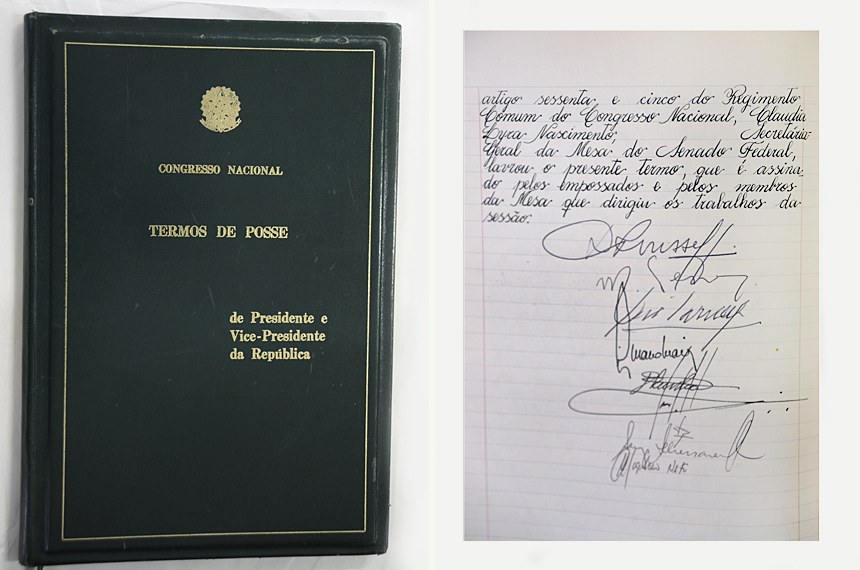 CONGRESSO NACIONAL
TERMOS DE POSSE
de Presidente e
Vice-Presidente
da República
artigo sessenta e cinco do Regimento
Comum do Congresso Nacional, Claudia
Lyra Nascimento, Secretária-
Geral da Mesa do Senado Federal,
lavrou o presente termo, que é assina
do pelos empossados e pelos membros
da Mesa que dirigiu os trabalhos da
sessão.